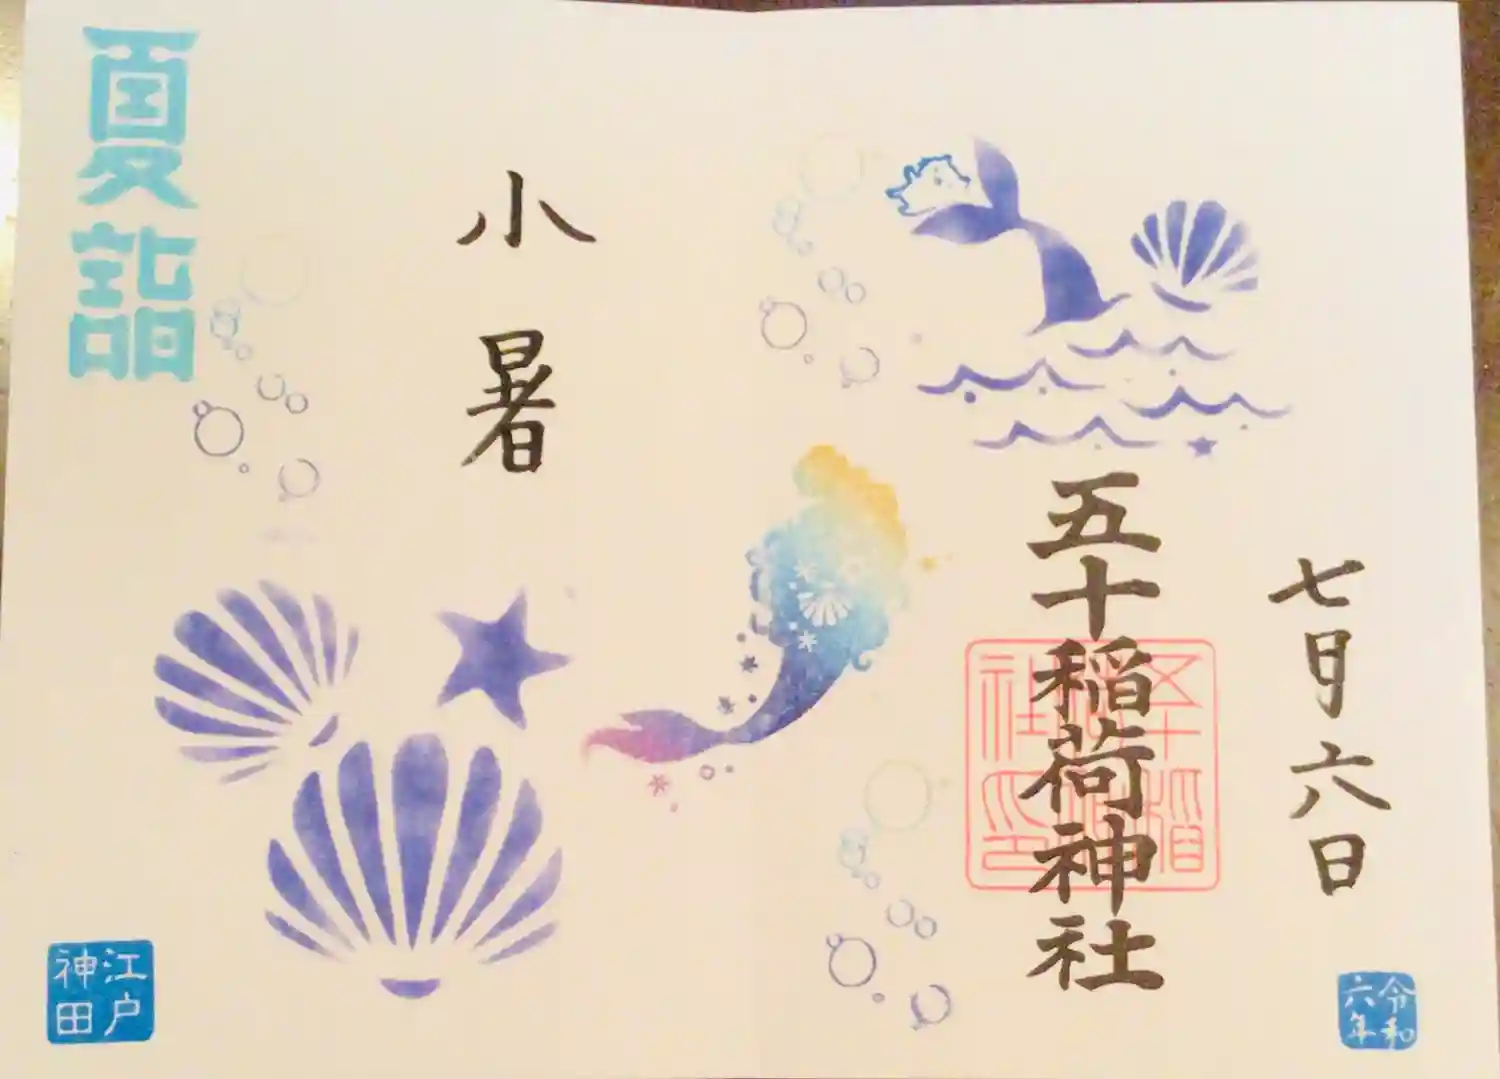 令和
六年
七月六日
五十稲荷神社
五十稲
荷神
社之印
小暑
夏詣
江戸
神田